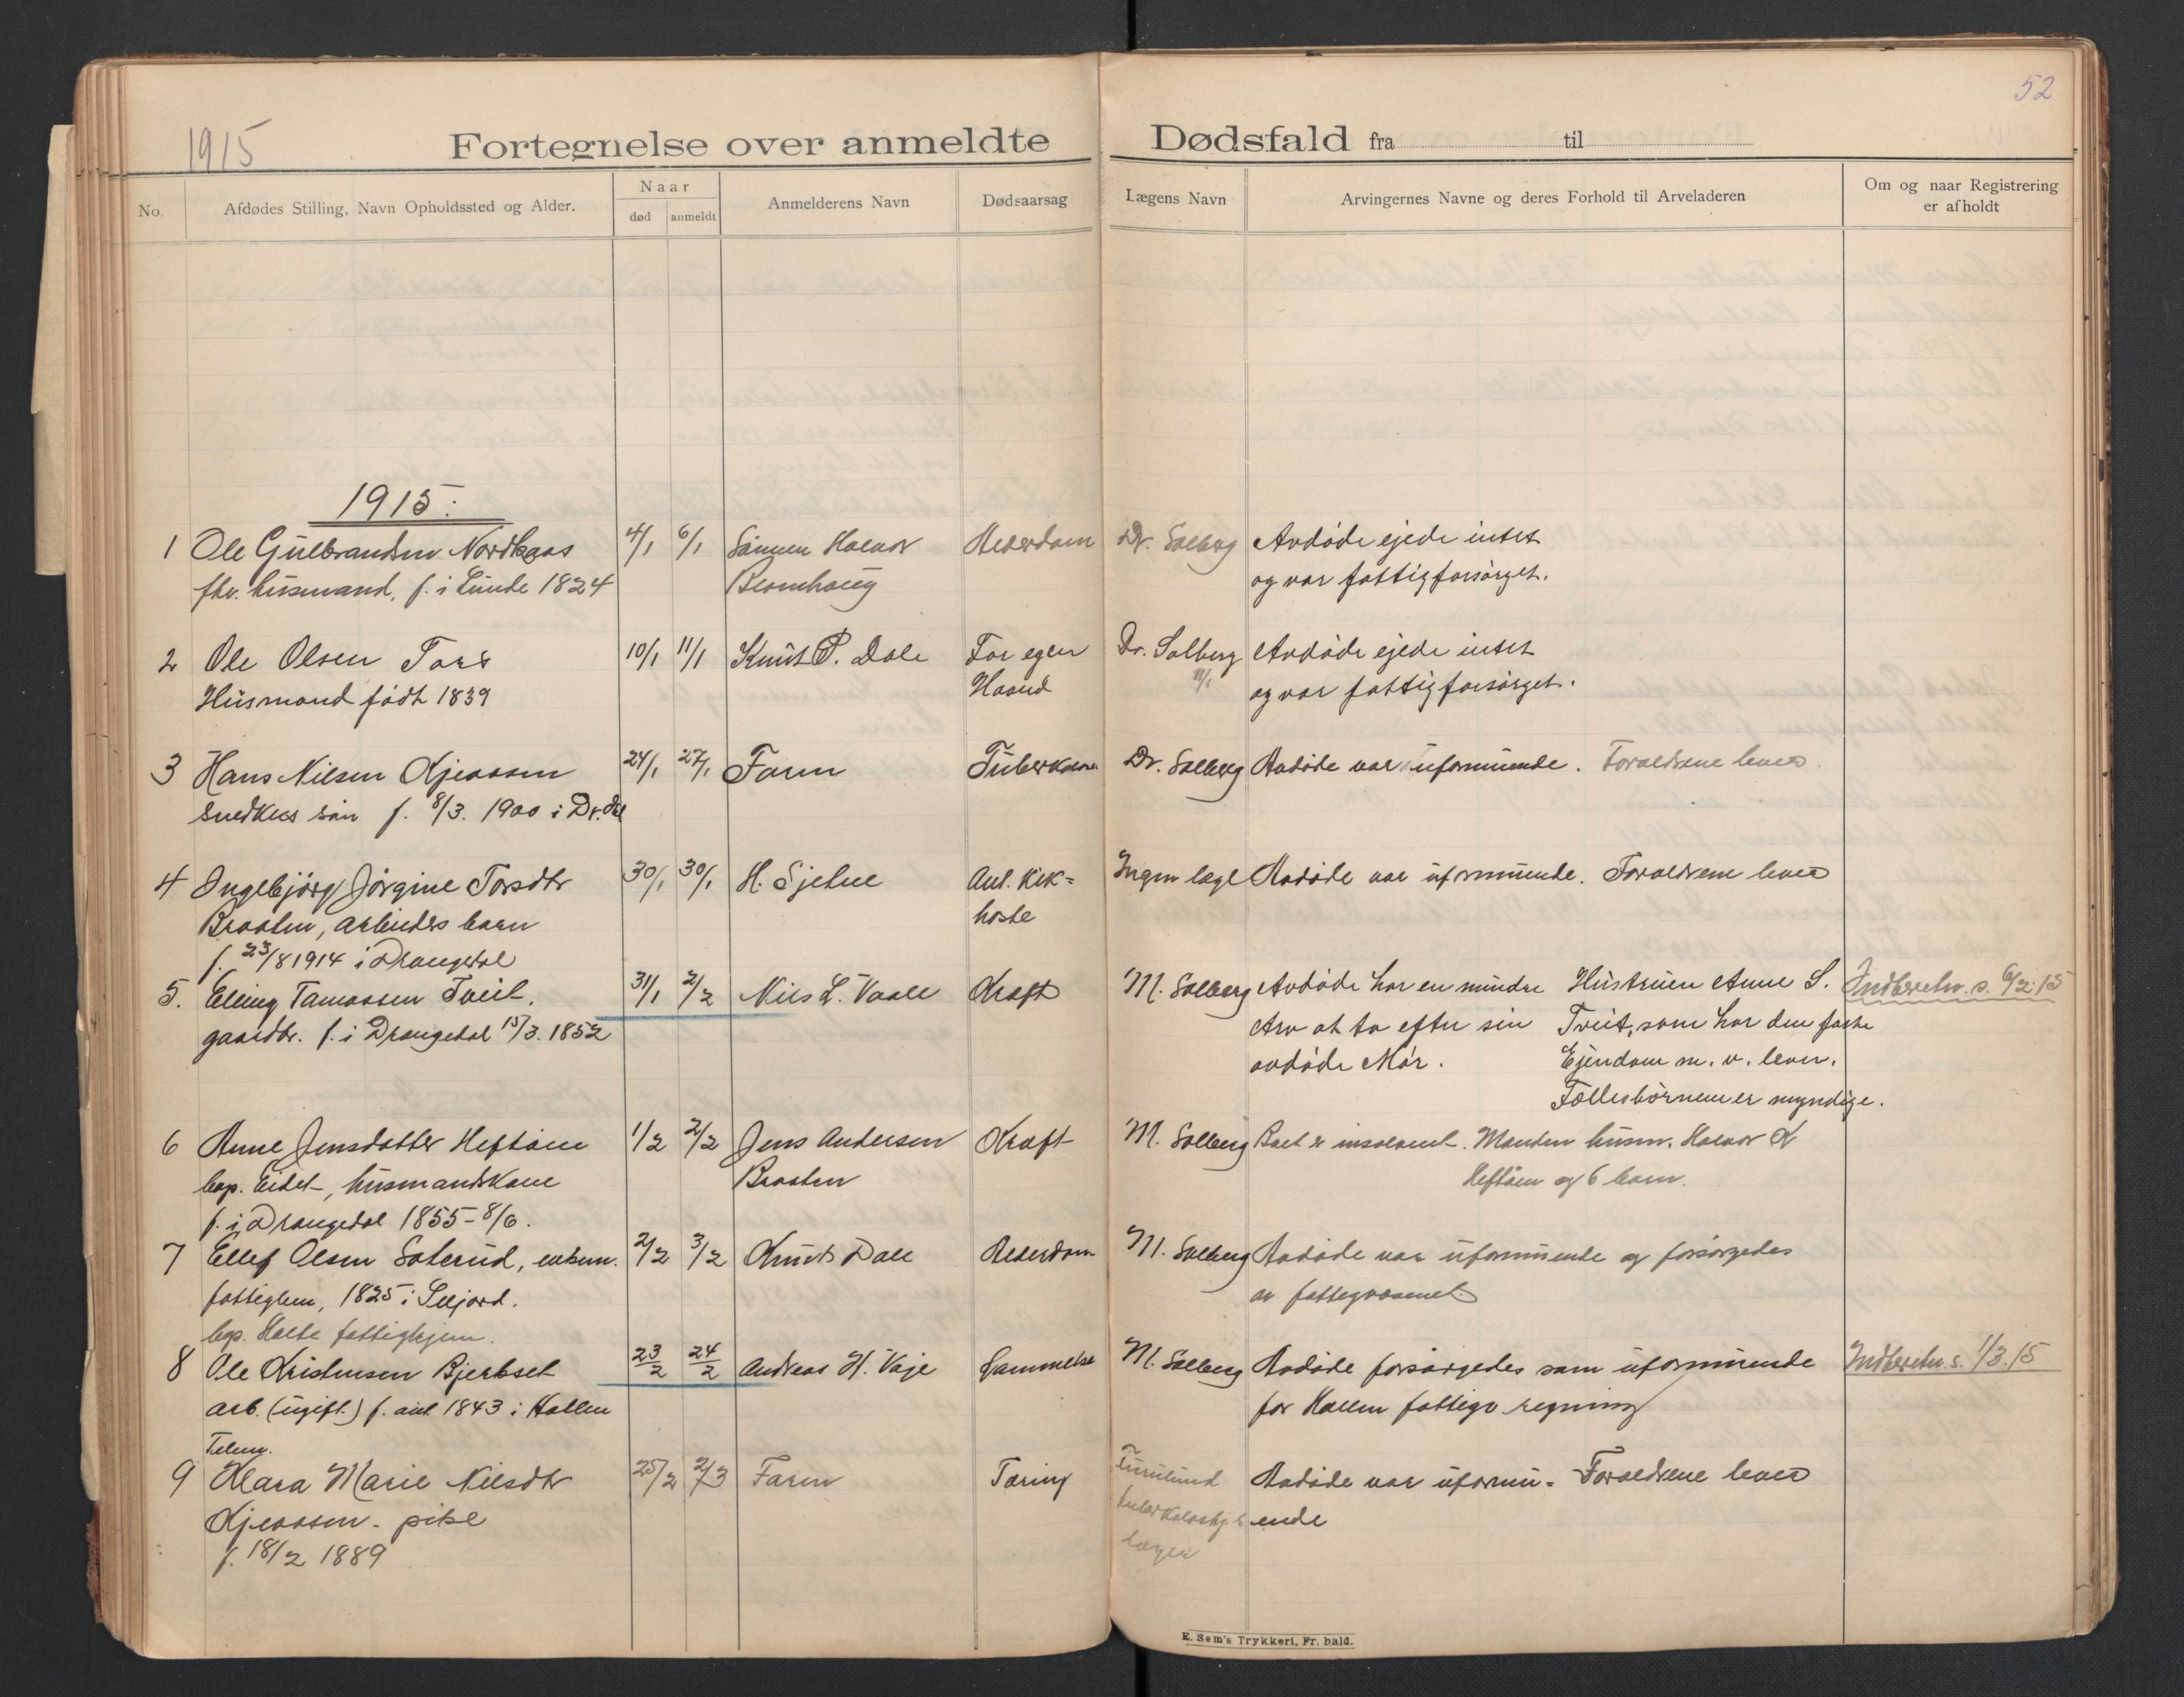 52
1915
Fortegnelse over anmeldte Dødsfald fra til
No.
Afdødes Stilling, Navn Opholdssted og Alder.
Naar
død
anmeldt
Anmelderens Navn
Dødsaarsag
Lægens Navn
Arvingernes Navne og deres Forhold til Arveladeren
Om og naar Registrering
er afholdt
1915:
1 Ole Gulbrandsen Nordkaas 4/1 6/1 Halvor Alderdom Dr. Solberg Avdøde ejede intet
fhv. husmand, f. i Lunde 1824 Blomhaug og var fattigforsørget.
2 Ole Olsen Tors 10/1 11/1 Knut P. Dale For egen Dr. Solberg Avdøde ejede intet
Husmand født 1839 Haand 11/1 og var fattigforsørget.
3 Hans Nilsen Kjeaasen 24/1 27/1 Faren Tuberkulose Dr. Solberg Avdøde var uformuende. Forældrene lever.
snedkers søn f. 8/3. 1900 i Dr.dal
4 Ingebjørg Jørgine Torsdtr 30/1 30/1 H. Sjelue Ant. kik= Ingen læge Avdøde var uformuende. Forældrene lever
Braaten, arbeiders barn hoste
f. 23/8 1914 i Drangedal
5. Elling Tamassen Tveit. 31/1 2/2 Nils L. Vaale Kræft M. Solberg Avdøde har en mindre Hustruen Anne S. Indberetn. s. 6/2.15
gaardbr. f. i Drangedal 15/3. 1852 Arv at ta efter sin Tveit, som har den faste
avdøde Mor. Ejendom m. v. lever.
Fællesbørnene er myndige.
6 Anne Jensdatter Heftøen 1/2 2/2 Jens Andersen Kræft M. Solberg Boet er insolvent. Manden husm. Halvor K
bop. Eidet, husmandskone Braaten Heftøen og 6 barn.
f. i Drangedal 1855 - 8/6.
7 Ellef Olsen Soterud, enkem. 2/2 3/2 Knut Dale Alderdom M. Solberg Avdøde var uformuende og forsørgedes
fattiglem, 1825 i Seljord. av fattigvæsenet.
bop. Holte fattighjem.
8 Ole Kristensen Bjerkset 23/2 24/2 Andreas H. Vaje M. Solberg Avdøde forsørgedes som uformuende Indberetn. s. 1/3.15
arb. (ugift.) f. ant. 1843 i Hollen for Hollen fattigv regning
Telem.
9 Klara Marie Nilsdtr 25/2 2/3 Faren Tæring Furulund Avdøde var uformu= Forældrene lever
Kjeaasen - pike tuberkuloshj.s ende
f. 18/2 1889 læge
E. Sem's Trykkeri, Fr. hald.